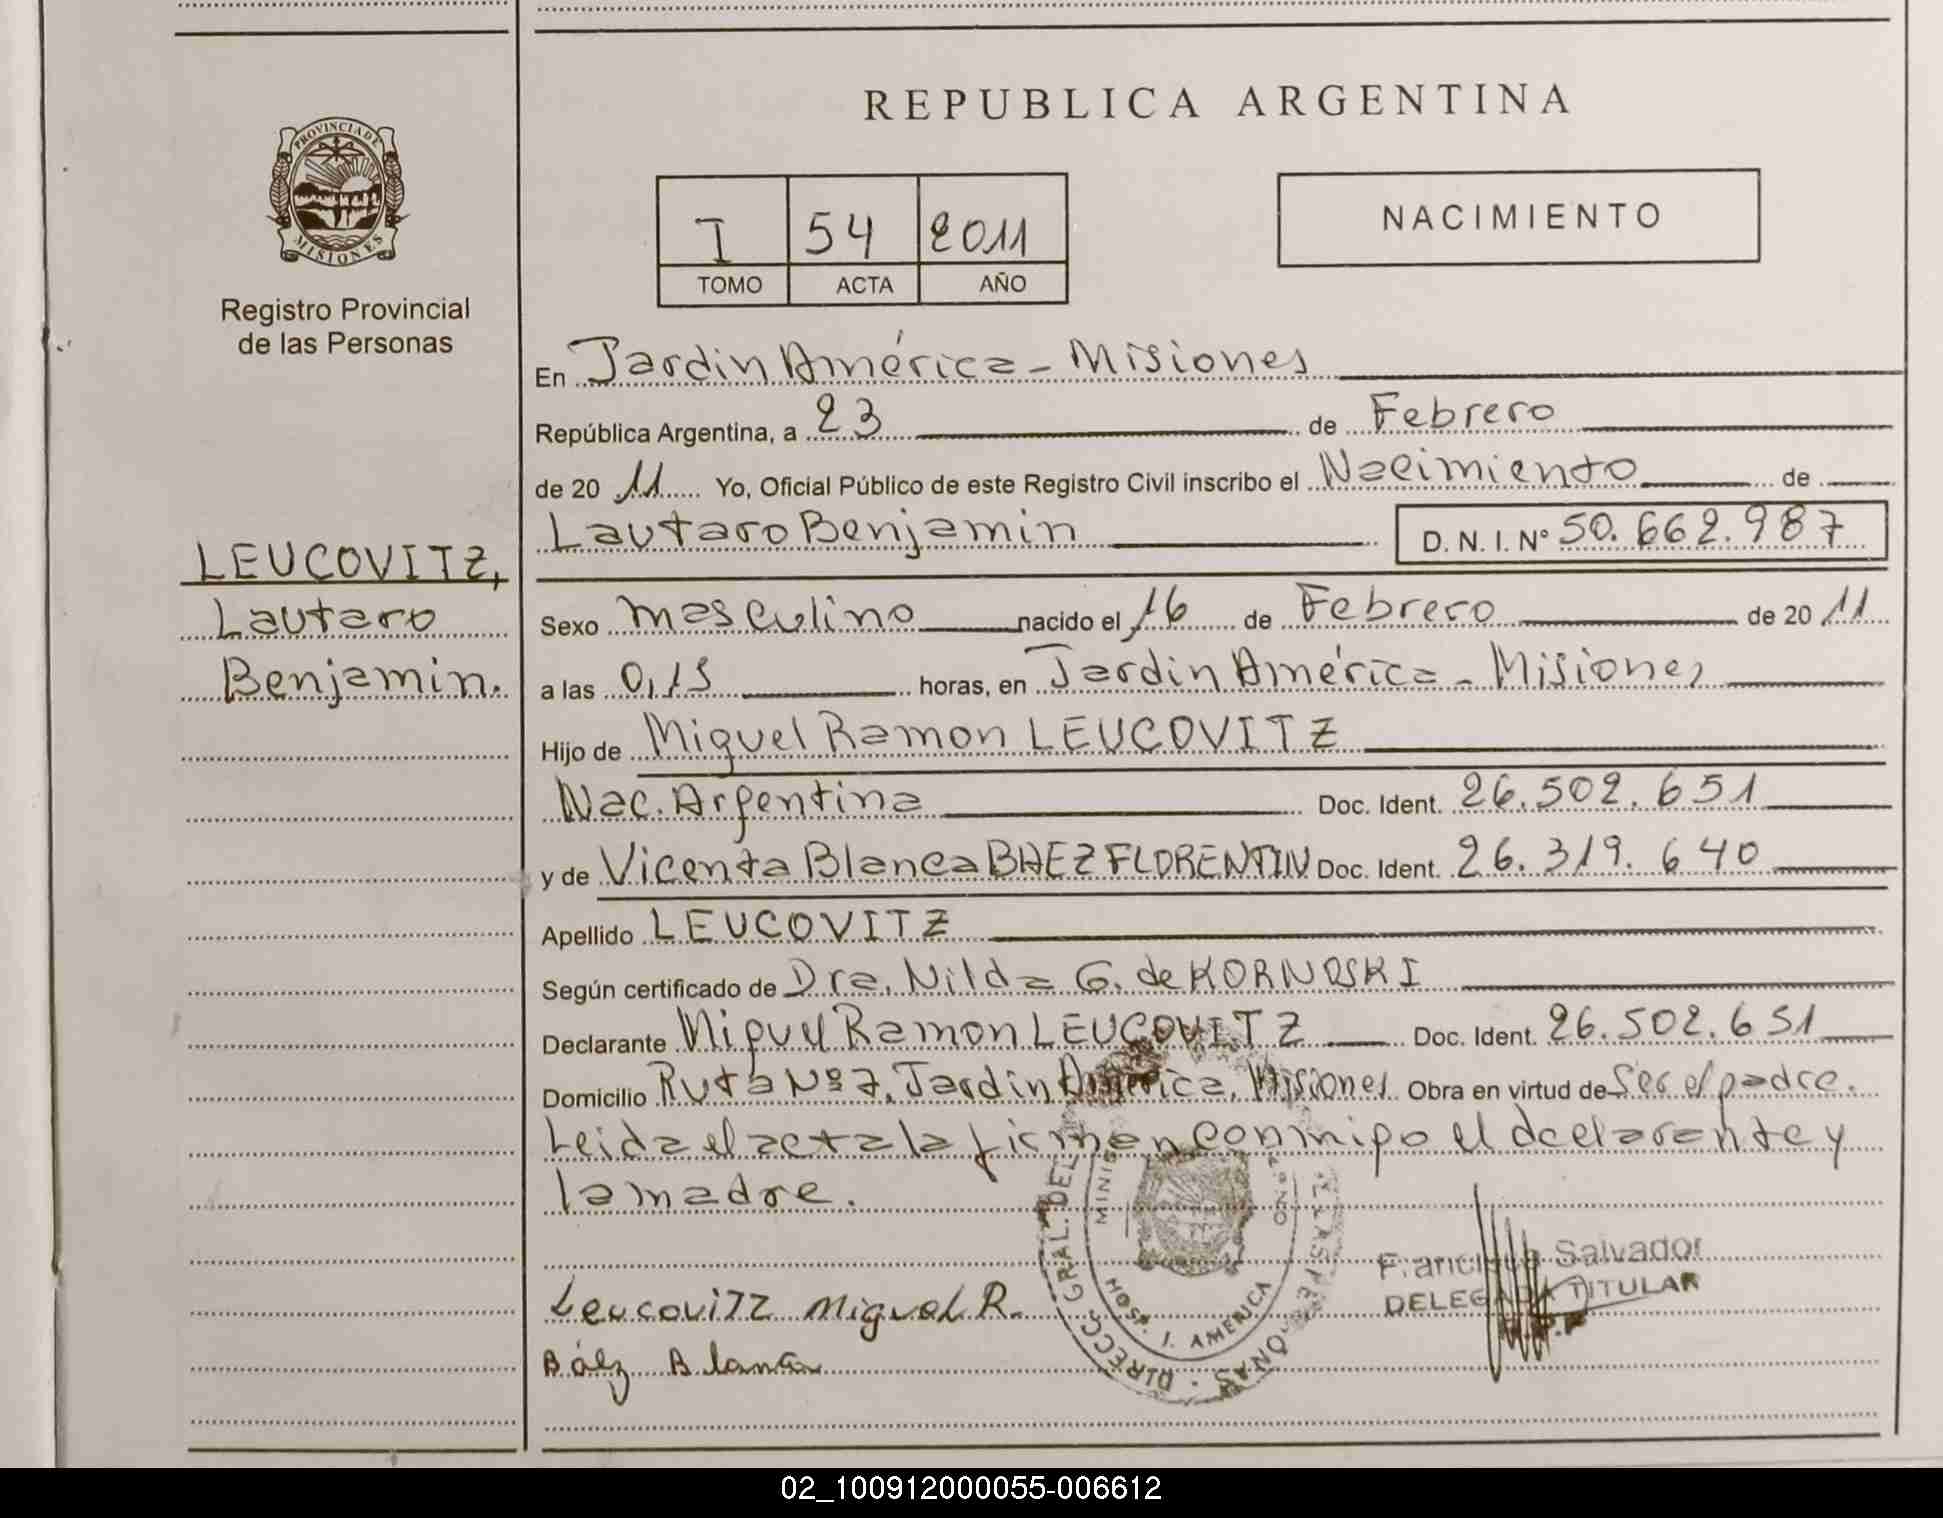 REPUBLICA ARGENTINA
PROVINCIA DE MISIONES
Registro Provincial
de las Personas
I 54 2011
TOMO ACTA AÑO
NACIMIENTO
LEUCOVITZ,
Lautaro
Benjamin.
En Jardin América - Misiones
República Argentina, a 23 de Febrero
de 20 11 Yo, Oficial Público de este Registro Civil inscribo el Nacimiento de
Lautaro Benjamin D. N. I. Nº 50.662.987
Sexo masculino nacido el 16 de Febrero de 20 11
a las 0,15 horas, en Jardin América - Misiones
Hijo de Miguel Ramon LEUCOVITZ
Nac. Argentina Doc. Ident. 26.502.651
y de Vicenta Blanca BAEZ FLORENTIN Doc. Ident. 26.319.640
Apellido LEUCOVITZ
Según certificado de Dra. Nilda G. de KORNOSKI
Declarante Miguel Ramon LEUCOVITZ Doc. Ident. 26.502.651
Domicilio Ruta Nº 7, Jardin América, Misiones Obra en virtud de Ser el padre.
Leida el acta la firman conmigo el declarante y
la madre.
DIRECC. GRAL. DEL PERSONAS
HOSP. J. AMERICA
Salvador
DELEGADA TITULAR
Leucovitz Miguel R.
Báez Blanca
02_100912000055-006612